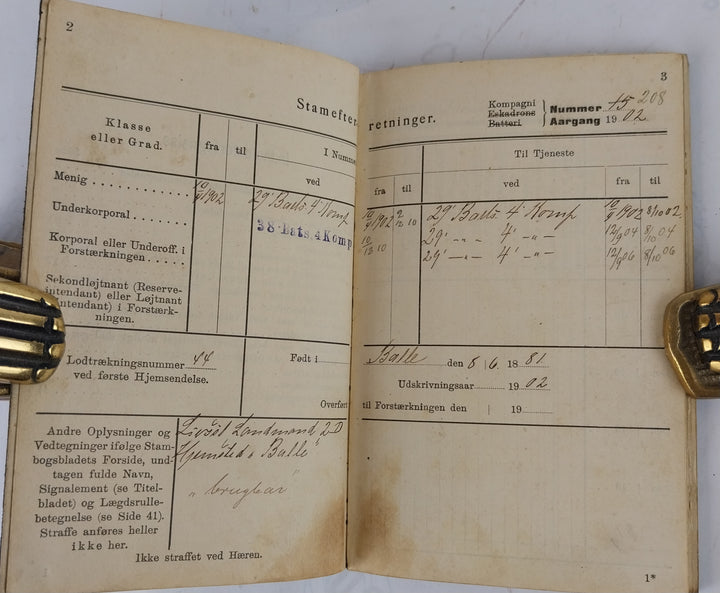 2
Stamefter-
Klasse
eller Grad.
fra
til
I Numme
ved
Menig
10/9 1902
29' Batls 4' Komp
Underkorporal
38. Bats. 4 Komp
Korporal eller Underoff. i
Forstærkningen
Sekondløjtnant (Reserve-
intendant) eller Løjtnant
(Intendant) i Forstærk-
ningen.
Lodtrækningsnummer 44
ved første Hjemsendelse.
Født i
Overført
Andre Oplysninger og
Vedtegninger ifølge Stam-
bogsbladets Forside, und-
tagen fulde Navn,
Signalement (se Titel-
bladet) og Lægdsrulle-
betegnelse (se Side 41).
Straffe anføres heller
ikke her.
Landmand
Balle
"brugbar"
Ikke straffet ved Hæren.
3
retninger.
Kompagni
Eskadrons
Batteri
Nummer 15 208
Aargang 1902
Til Tjeneste
fra
til
ved
fra
til
10/9 1902
29' Batls 4' Komp
10/9 1902
8/10 02
29' 4'
12/9 04
8/10 04
29' 4'
12/9 06
8/10 06
Balle den 8/6 1881
Udskrivningsaar 1902
til Forstærkningen den | 19
1*